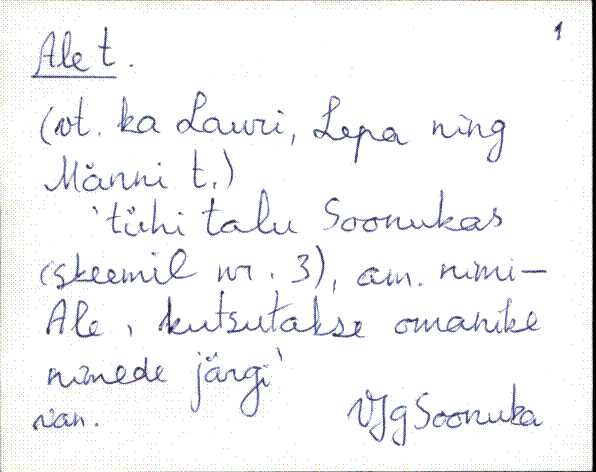 1
Ale t.
(vt. ka Lauri, Lepa ning
Männi t.)
'tühi talu Soonukas
(skeemil nr. 3), am. nimi –
Ale, kutsutakse omanike
nimede järgi'
VJg Soonuka